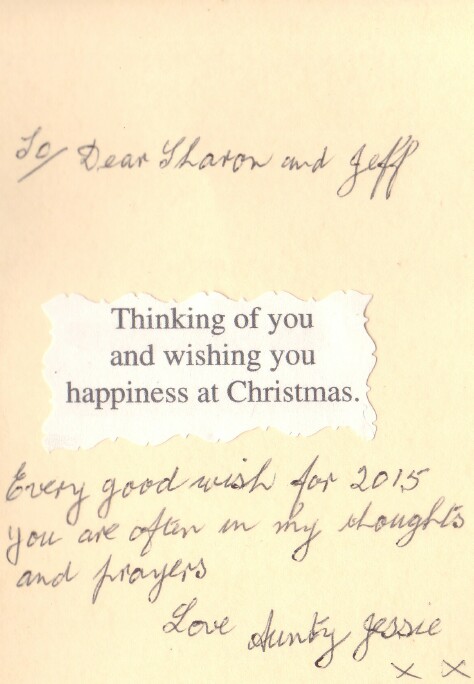 To/ Dear Sharon and Jeff
Thinking of you
and wishing you
happiness at Christmas.
Every good wish for 2015
you are often in my thoughts
and prayers
Love Aunty Jessie
x x